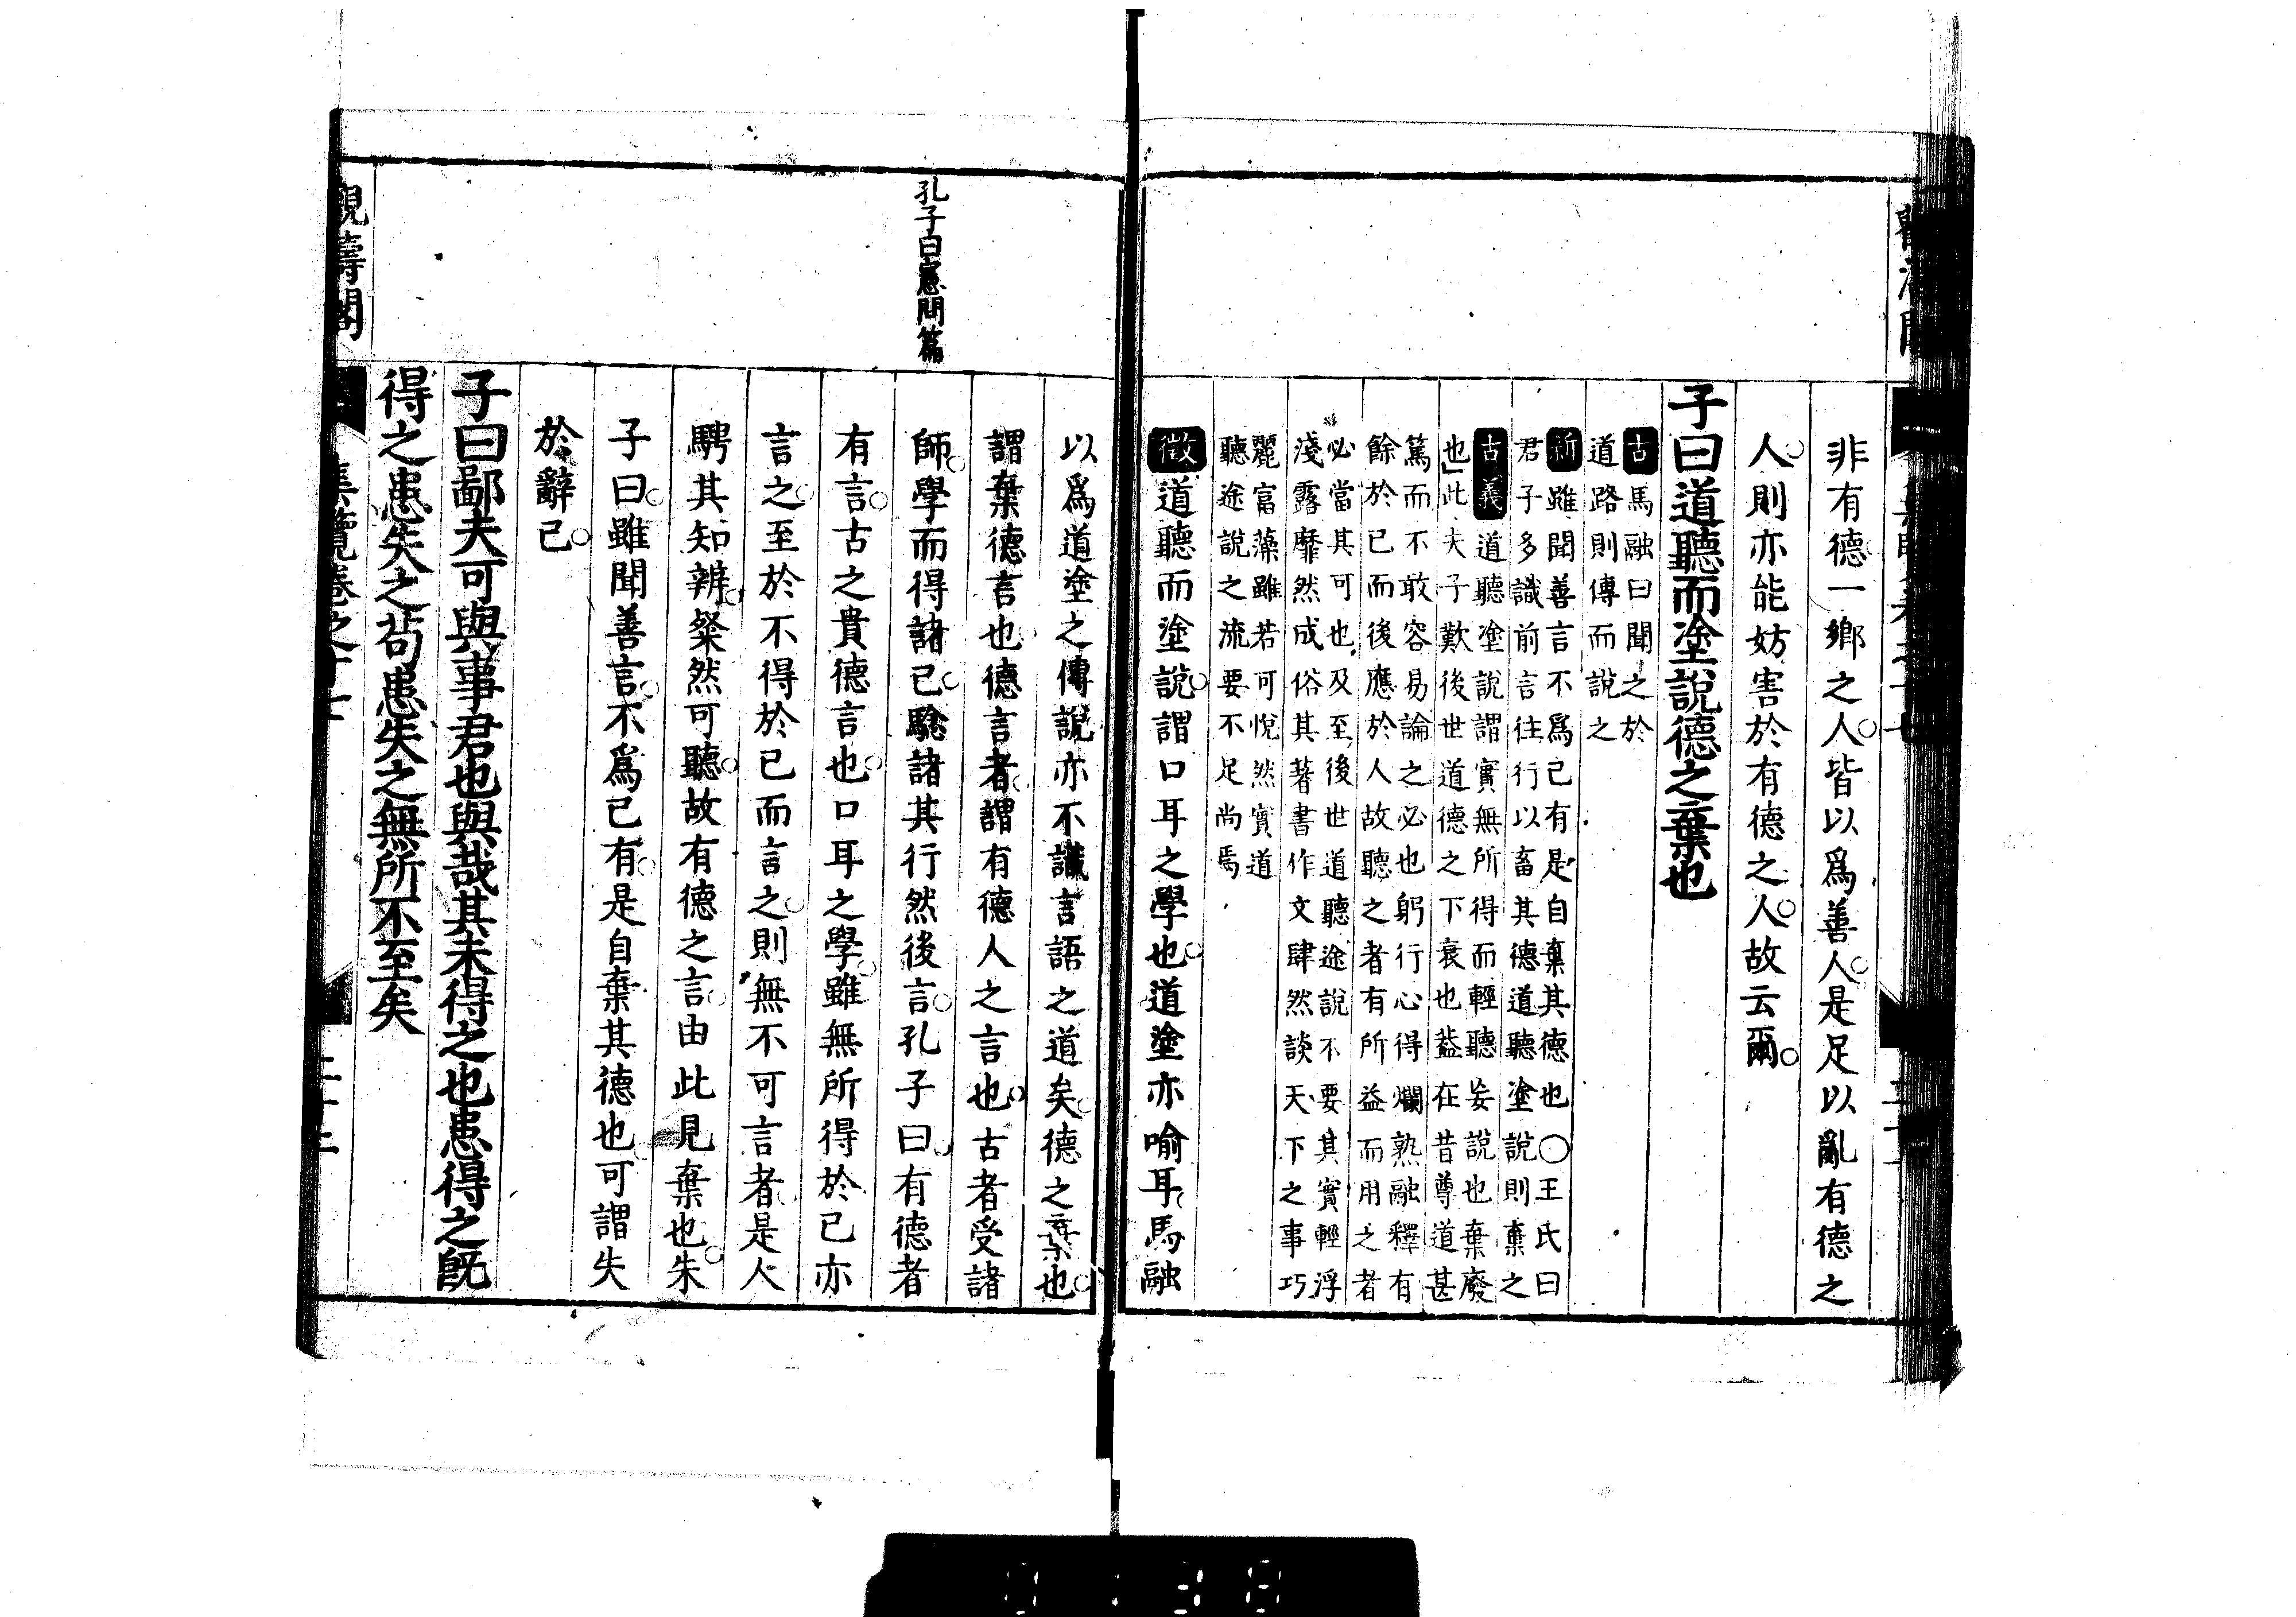 非有德一鄉之人皆以爲善人是足以亂有德之
人則亦能妨害於有德之人故云爾
子曰道聽而塗說德之棄也
古馬融曰聞之於
道路則傳而說之
新雖聞善言不爲己有是自棄其德也○王氏曰
君子多識前言往行以畜其德道聽塗說則棄之
古義道聽塗說謂實無所得而輕聽妄說也棄廢
也」此夫子歎後世道德之下衰也葢在昔尊道甚
篤而不敢容易論之必也躬行心得爛熟融釋有
餘於己而後應於人故聽之者有所益而用之者
必當其可也及至後世道聽途說不要其實輕浮
淺露靡然成俗其著書作文肆然談天下之事巧
麗富藻雖若可悅然實道
聽途說之流要不足尚焉
徵道聽而塗說謂口耳之學也道塗亦喻耳馬融
以爲道塗之傳說亦不識言語之道矣德之棄也
謂棄德言也德言者謂有德人之言也古者受諸
師學而得諸己驗諸其行然後言孔子曰有德者
孔子曰憲問篇
有言古之貴德言也口耳之學雖無所得於己亦
言之至於不得於己而言之則無不可言者是人
騁其知辨粲然可聽故有德之言由此見棄也朱
子曰雖聞善言不爲己有是自棄其德也可謂失
於辭已
子曰鄙夫可與事君也與哉其未得之也患得之旣
得之患失之苟患失之無所不至矣
觀濤閣
集覽卷之十七